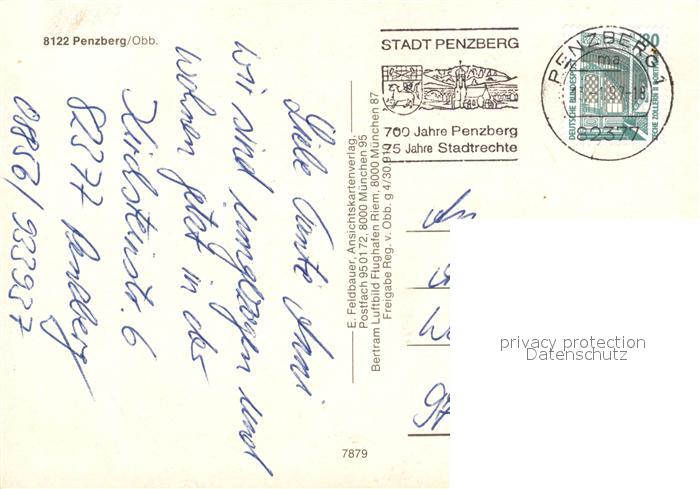 8122 Penzberg/Obb.
Liebe Tante Anni
wir sind umgezogen und
wohnen jetzt in der
82377 Penzberg
08856/933937
E. Feldbauer, Ansichtskartenverlag,
Postfach 95 01 72, 8000 München 95
Bertram Luftbild Flughafen Riem, 8000 München 87
Freigabe Reg. v. Obb. g 4/30.912
7879
STADT PENZBERG
700 Jahre Penzberg
75 Jahre Stadtrechte
PENZBERG 1
ma
-18
82377
80
DEUTSCHE BUNDESPOST
An
privacy protection
Datenschutz